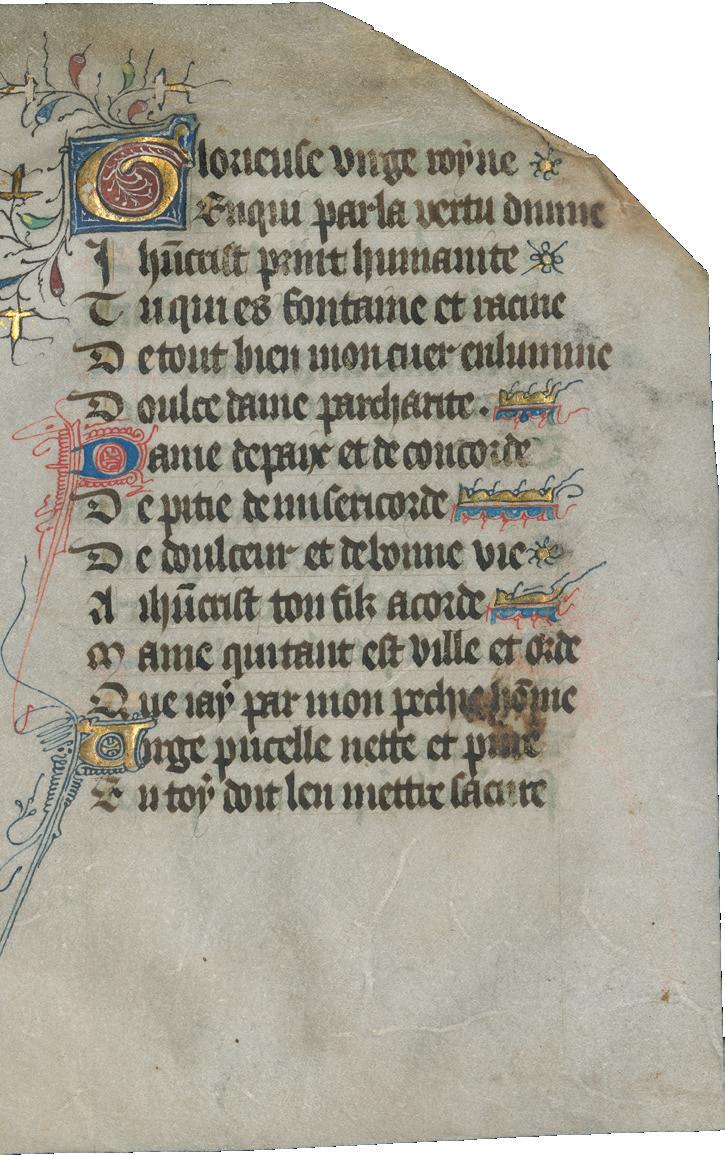 Glorieuse virge royne
En qui par la vertu diuine
Jhūcrist print humanite
Tu qui es fontaine et racine
De tout bien mon cuer enlumine
Doulce dame par charite.
Dame de paix et de concorde
De pitie de misericorde
De doulceur et de bonne vie
A ihūcrist ton filz acorde
Mame qui tant est ville et orde
Que iay par mon pechie
Virge pucelle nette et pure
En toy doit len mettre sa cure